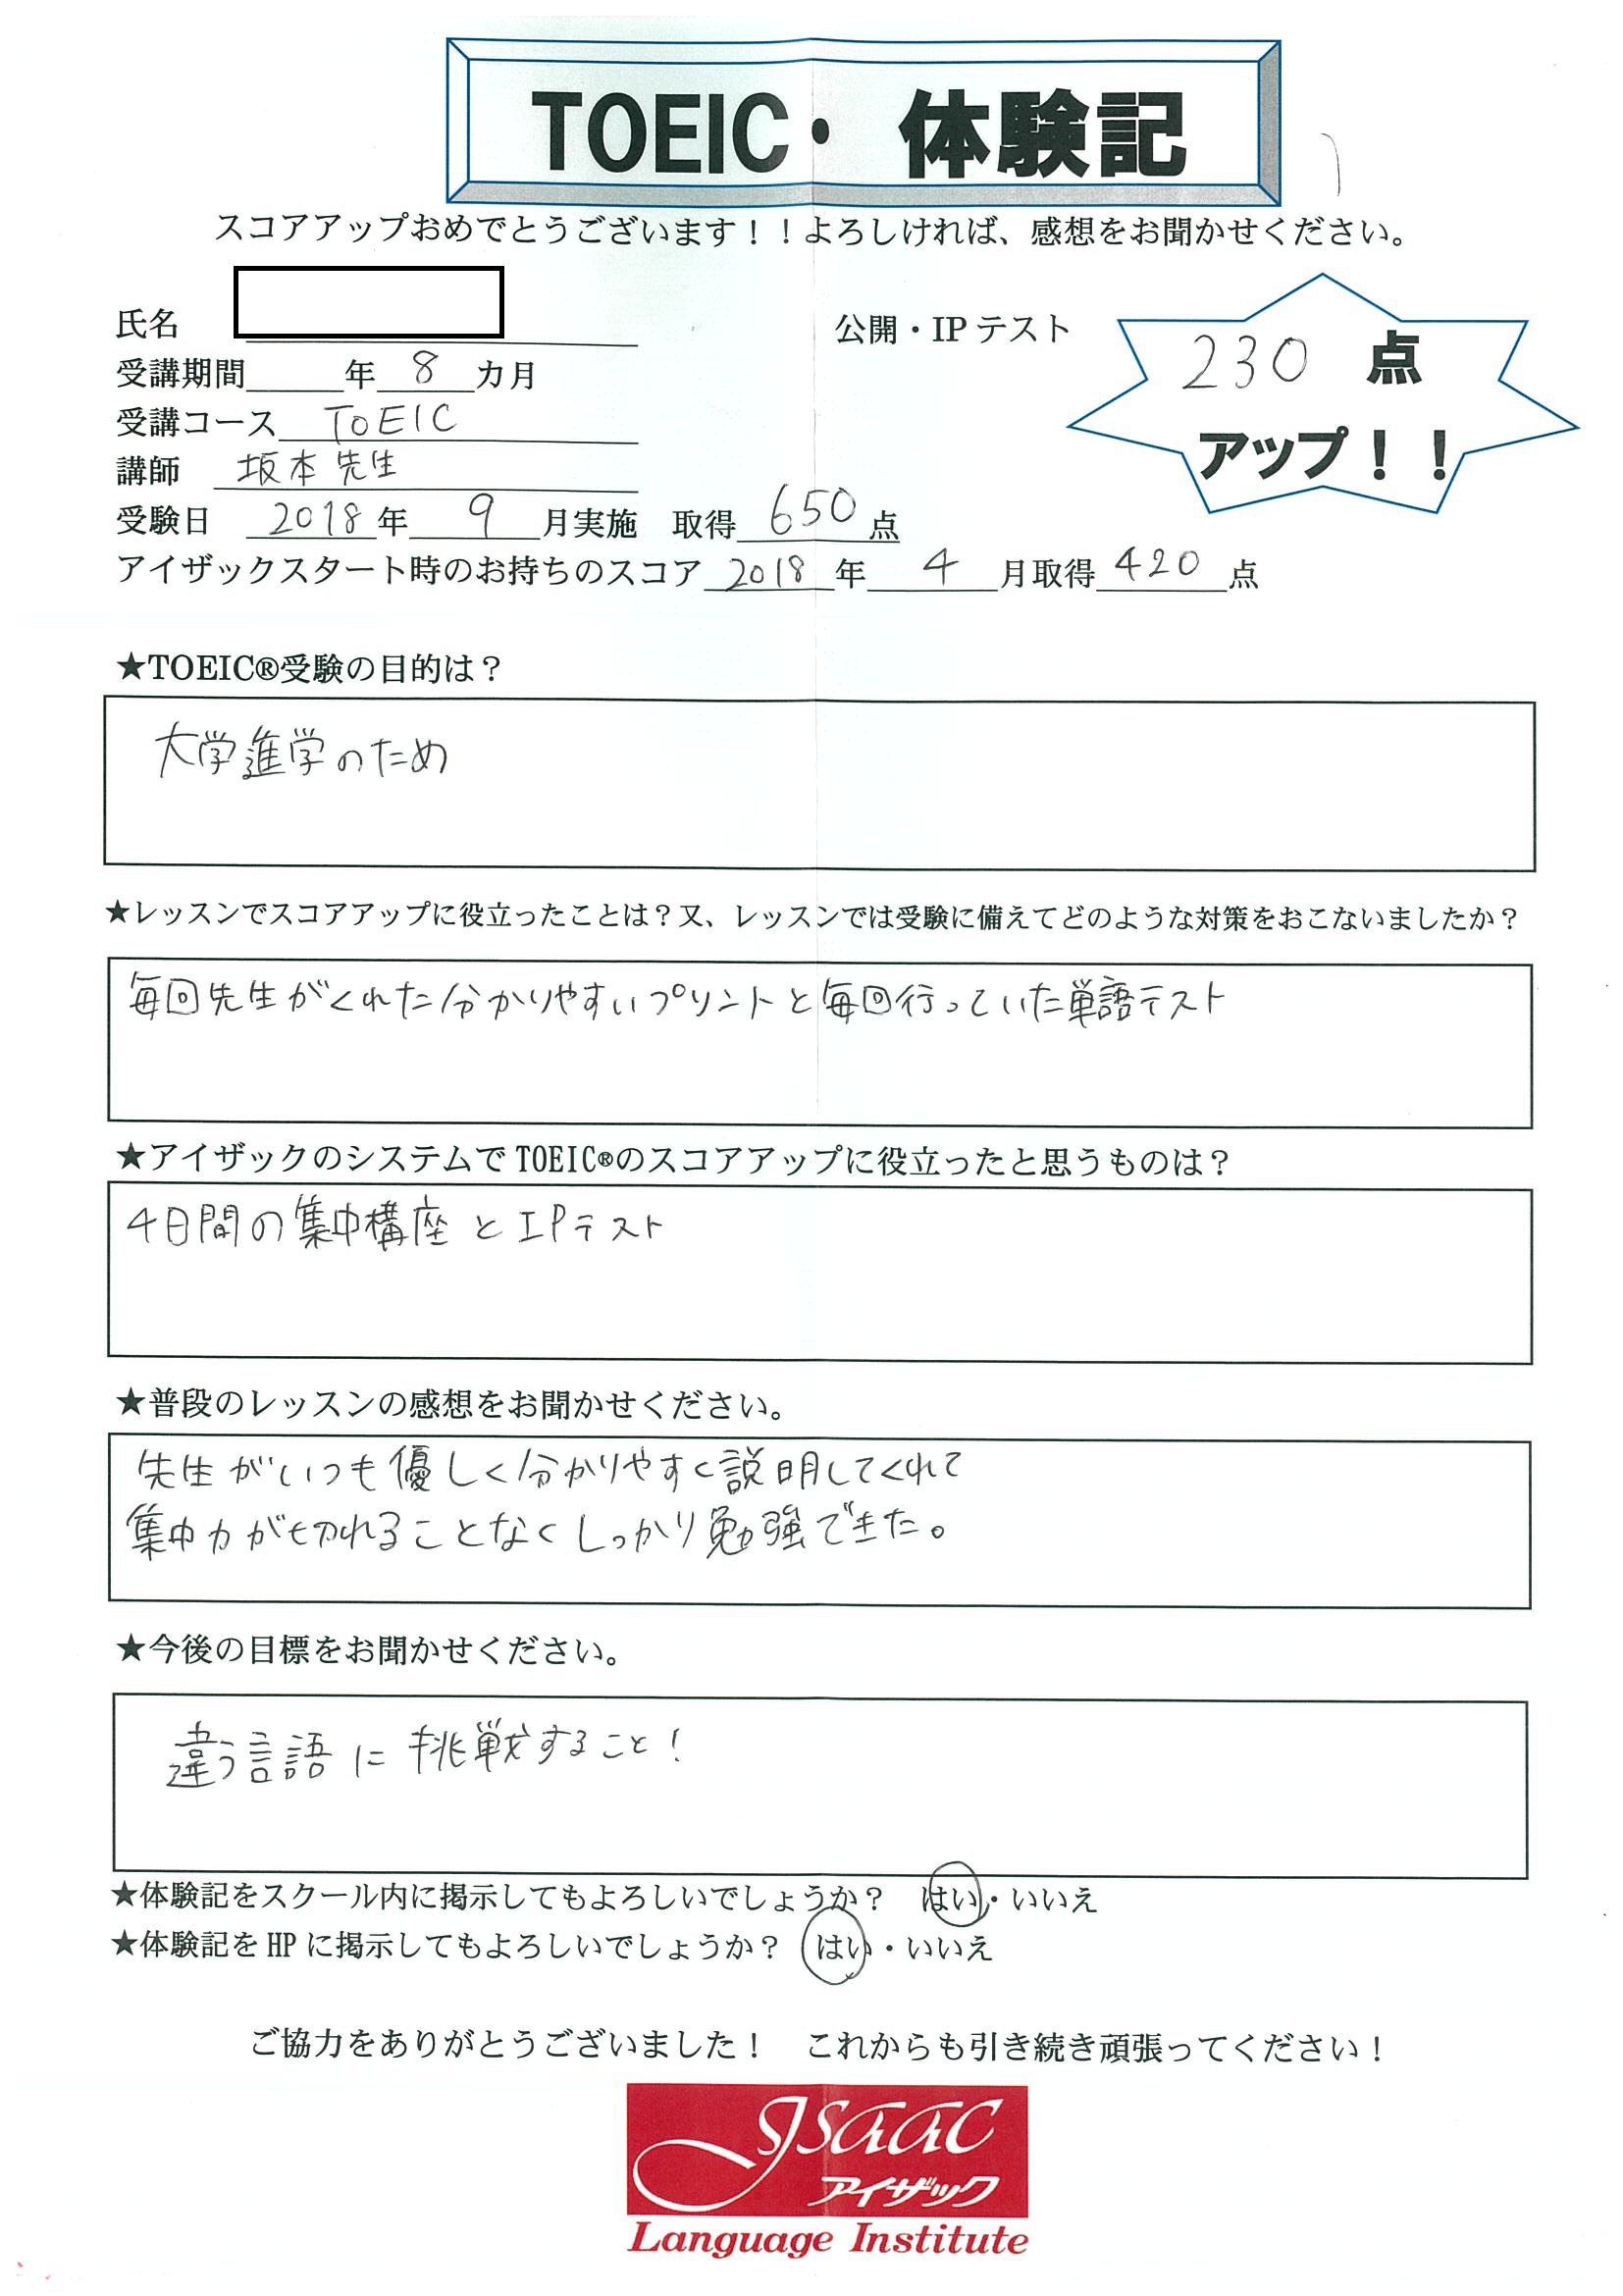 TOEIC・ 体験記
スコアアップおめでとうございます！！よろしければ、感想をお聞かせください。
氏名
公開・IP テスト
230 点
アップ！！
受講期間 年 8 カ月
受講コース TOEIC
講師 坂本先生
受験日 2018 年 9 月実施 取得 650 点
アイザックスタート時のお持ちのスコア 2018 年 4 月取得 420 点
★TOEIC®受験の目的は？
大学進学のため
★レッスンでスコアアップに役立ったことは？又、レッスンでは受験に備えてどのような対策をおこないましたか？
毎回先生がくれた分かりやすいプリントと毎回行っていた単語テスト
★アイザックのシステムで TOEIC®のスコアアップに役立ったと思うものは？
4日間の集中講座とIPテスト
★普段のレッスンの感想をお聞かせください。
先生がいつも優しく分かりやすく説明してくれて
集中力が切れることなくしっかり勉強できた。
★今後の目標をお聞かせください。
違う言語に挑戦すること！
★体験記をスクール内に掲示してもよろしいでしょうか？ はい・いいえ
★体験記を HP に掲示してもよろしいでしょうか？ はい・いいえ
ご協力をありがとうございました！ これからも引き続き頑張ってください！
ISAAC
アイザック
Language Institute